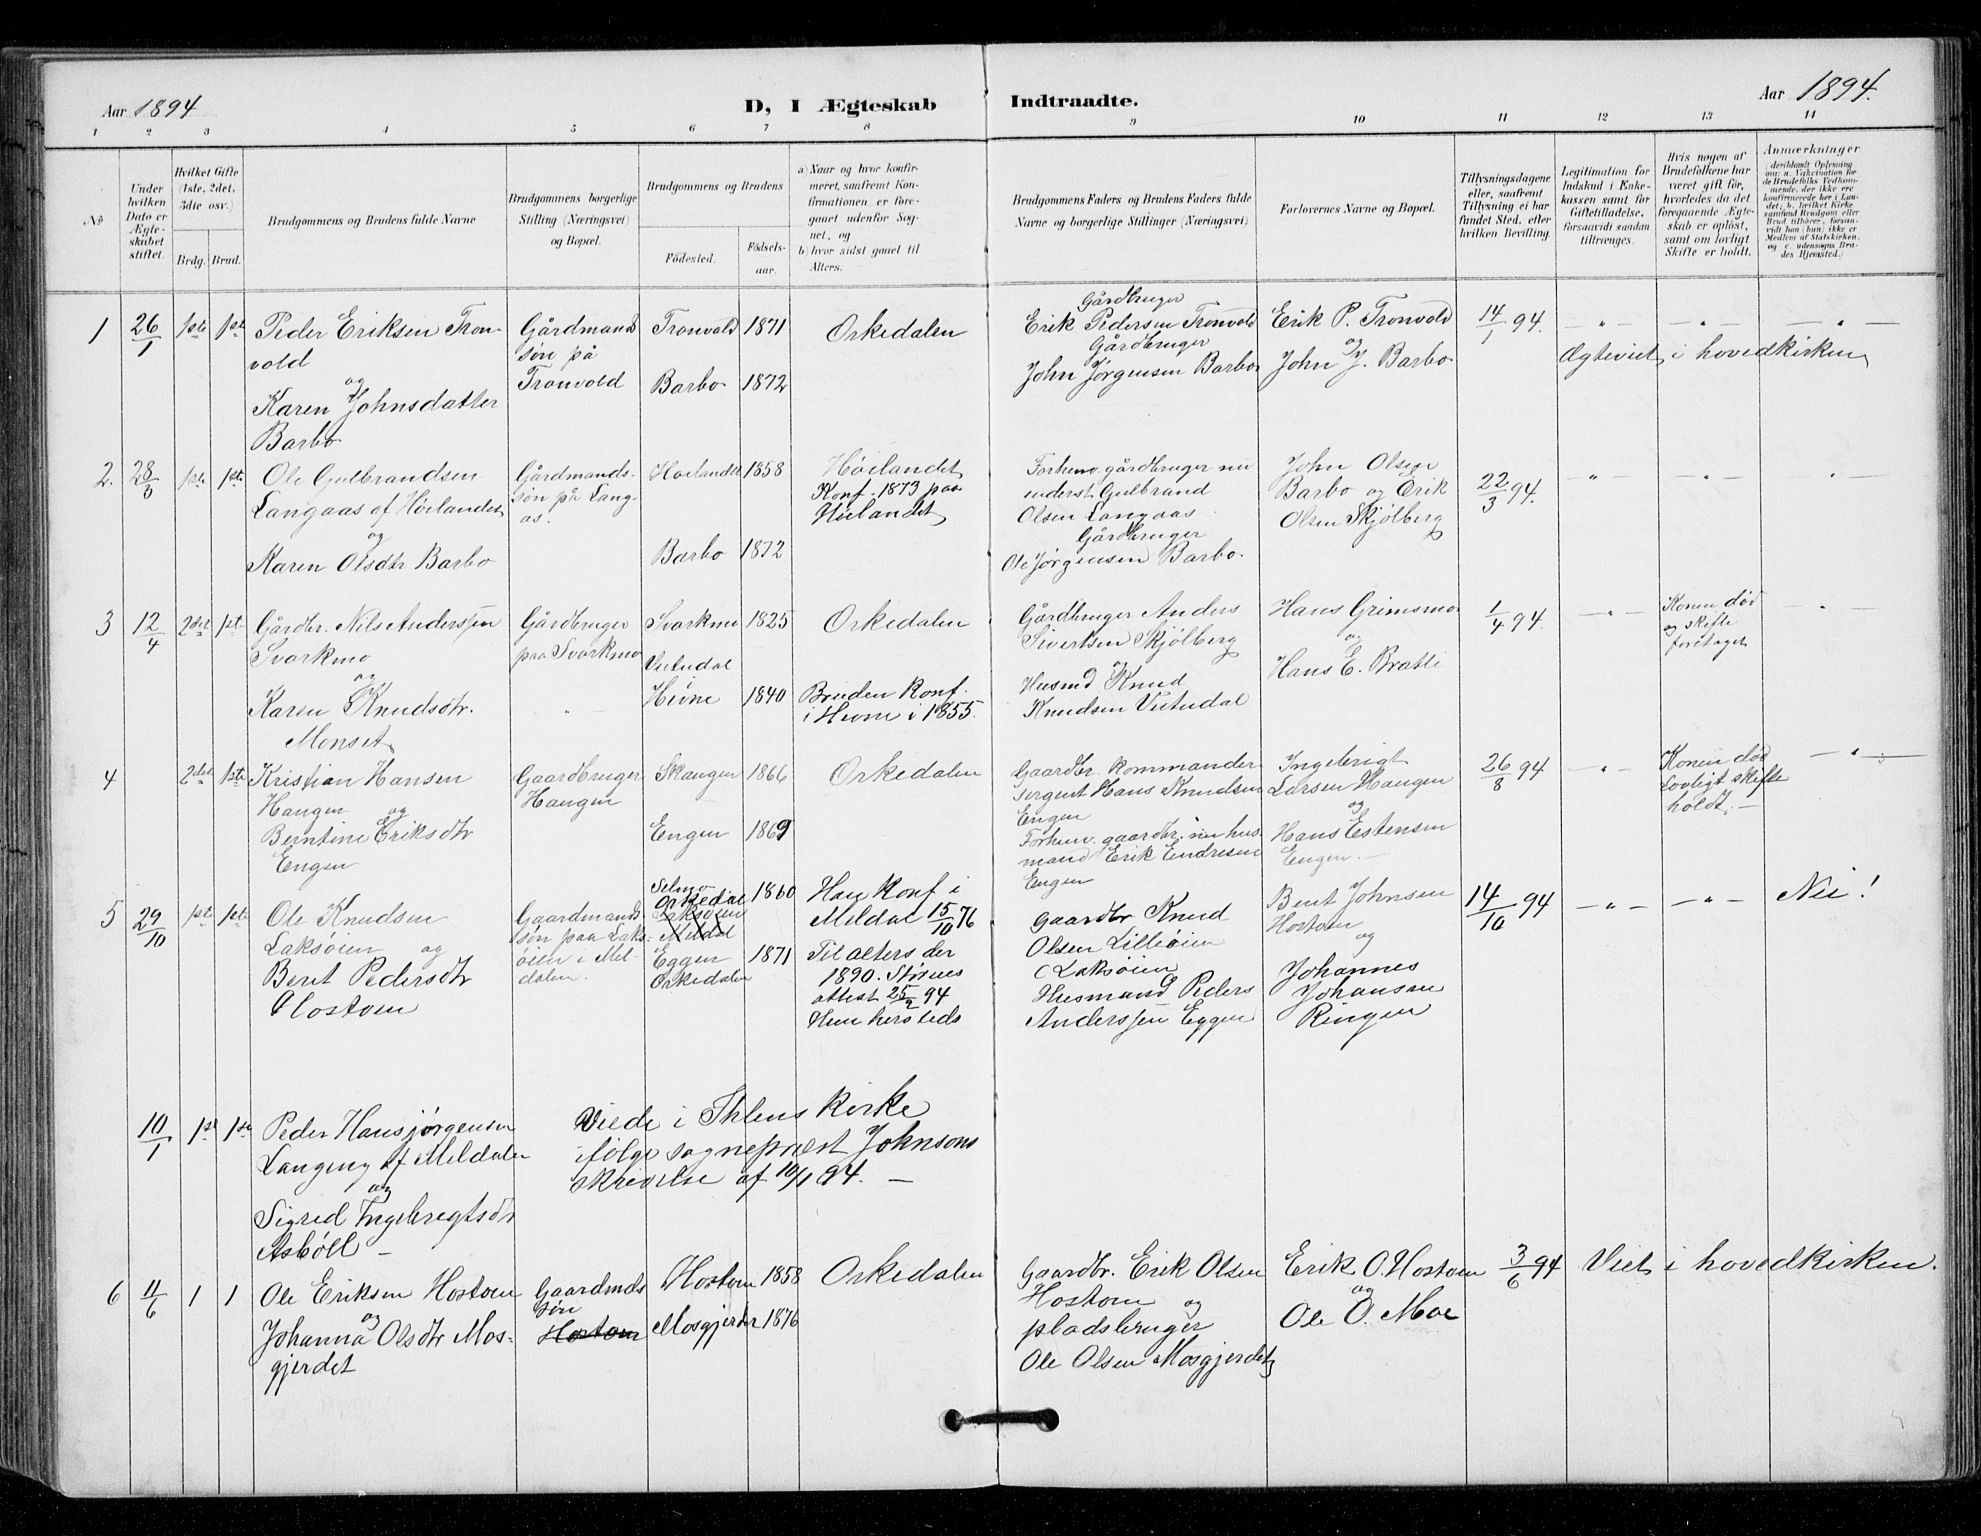 Aar 1894
D, I Ægteskab Indtraadte.
Aar 1894.
1 2 3 4 5 6 7 8 9 10 11 12 13 14
No
Under hvilken Dato er Ægteskabet stiftet.
Hvilket Gifte (1ste, 2det, 3die osv.)
Brdg. Brud.
Brudgommens og Brudens fulde Navne
Brudgommens borgerlige Stilling (Næringsvei) og Bopæl.
Brudgommens og Brudens
Fødested.
Fødsels-aar.
a) Naar og hvor konfirmeret, saafremt Konfirmationen er foregaaet udenfor Sognet, og
b) hvor sidst gaaet til Alters.
Brudgommens Faders og Brudens Faders fulde Navne og borgerlige Stillinger (Næringsvei)
Forlovernes Navne og Bopæl.
Tillysningsdagene eller, saafremt Tillysning ei har fundet Sted, efter hvilken Bevilling.
Legitimation for Indskud i Enkekassen samt for Giftetilladelse, forsaavidt saadan tiltrænges.
Hvis nogen af Brudefolkene har været gift før, hvorledes da det foregaaende Ægteskab er opløst, samt om lovligt Skifte er holdt.
Anmærkninger
(deriblandt Oplysning om: a. Vakcination for de Brudefolks Vedkommende, der ikke ere konfirmerede her i Landet; b. hvilket Kirkesamfund Brudgom eller Brud tilhører, forsaavidt han (hun) ikke er Medlem af Statskirken, og c. udensogns Brudes Hjemsted.)
1 26/1 1ste 1ste
Peder Eriksen Tron-
vold
og
Karen Johnsdatter
Barbo
Gårdmands
søn på
Tronvold
Tronvold 1871
Barbo 1872
Orkedalen
Gårdbruger
Erik Pedersen Tronvold
Gårdbruger
John Jørgensen Barbo
Erik P. Tronvold
og
John J. Barbo
14/1 94.
— " — — " — — " —
Ægteviet i hovedkirken
2. 28/3 1ste 1ste
Ole Gulbrandsen
Langaas af Höilandet
og
Karen Olsdtr Barbo
Gårdmands-
søn på Lang-
as.
Hoilandet 1858
Barbo 1872
Höilandet
Konf. 1873 paa
Höilandet
Forhenv. gårdbruger nu
underst. Gulbrand
Olsen Langaas
Gårdbruger
Ole Jørgensen Barbo.
John Olsen
Barbo og Erik
Olsen Skjølberg
22/3 94.
— " — — " — " —
3 12/4 2det 1ste
Gårdbr. Nils Anderssen
Svorkmo
og
Karen Knudsdtr.
Monset
Gårdbruger
paa Svorkmo
— " —
Svorkmo 1825
Vutudal
Hevne 1840
Orkedalen
Bruden Konf.
i Hevne i 1855.
Gårdbruger Anders
Sivertsen Skjølberg
og
Husmd Knud
Knudsen Vutudal
Hans Grimsmo
og
Hans E. Bratli
1/4 94.
— " —
Konen død
og skifte
foretaget
— " —
4 2det 1ste
Kristian Hansen
Haugen og
Berntine Eriksdtr
Engen
Gaardbruger
Haugen
Skaugen 1866
Engen 1869
Orkedalen
Gaardbr. kommander
sergent Hans Knudsen
Engen
Forhenv. gaardbr. nu hus
mand Erik Endresen
Engen
Ingebrigt
Larsen Haugen
og
Hans Estensen
Engen. —
26/8 94
— " —
Konen død
Lovligt skifte
holdt. —
— " —
5 29/10 1ste 1ste
Ole Knudsen
Laksøien og
Berit Pedersdtr
Hostoen
Gaardmands
søn paa Laks-
øien i Mel-
dalen.
Selmo
Orkedal 1860
Laksøien
Meldal
Eggen 1871
Orkedalen
Han Konf i
Meldal 15/10 76
Til alters der
1890.
attest 25/9 94
Hun hersteds
Gaardbr Knud
Olsen Lilleøien
Laksøien
Husmand Peder
Anderssen Eggen
Berit Johnsen
Hostoen
og
Johannes
Johansen
Ringen
14/10 94
— " — — " — Nei!
10/1 1ste 1ste
Peder Hansjørgensen
Langeng af Meldalen
og
Sigrid Ingebregtsdtr
Asbøll —
Viede i Ihlens kirke
ifølge sogneprest Johnsons
skrivelse af 10/1 94. —
6 11/6 1 1
Ole Eriksen Hostoen
og
Johanna Olsdtr Mos-
gjerdet
Gaardmds
søn
Hostoen
Hostoen 1858
Mosgjerdet 1876
Orkedalen
Gaardbr. Erik Olsen
Hostoen og
pladsbruger
Ole Olsen Mosgjerdet
Erik O. Hostoen
og
Ole O. Moe
3/6 94
Viet i hovedkirken.